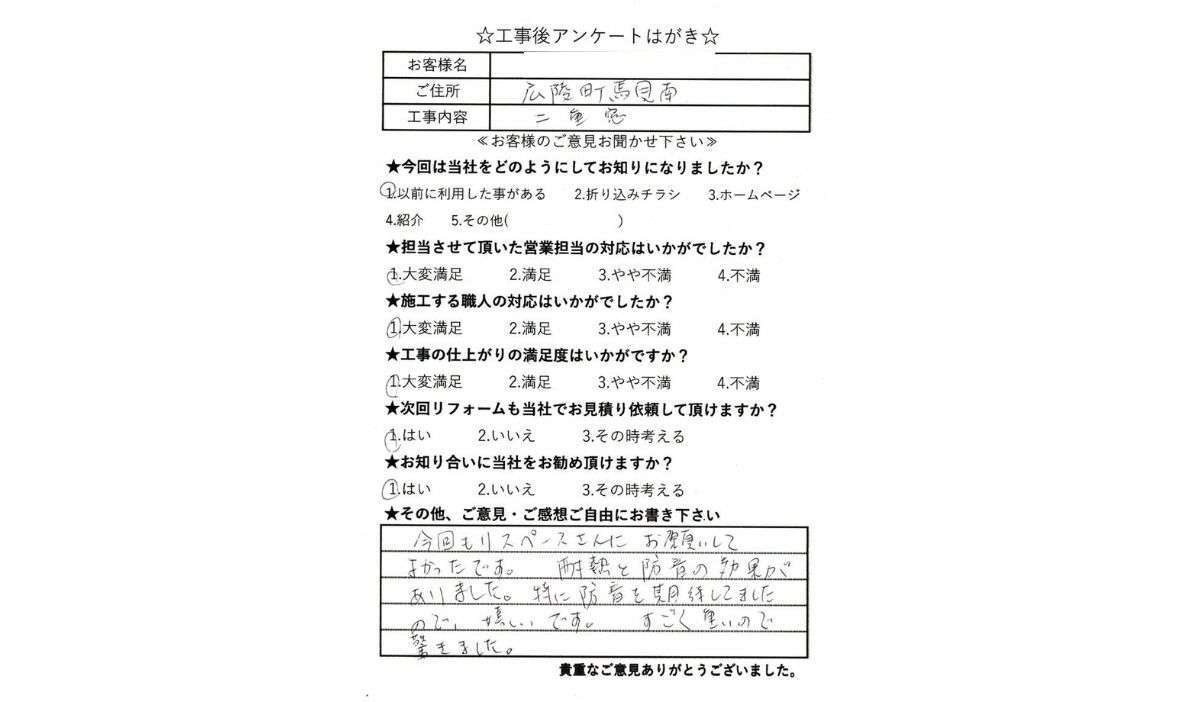 ☆工事後アンケートはがき☆
お客様名
ご住所 広陵町馬見南
工事内容 二重窓
≪お客様のご意見お聞かせ下さい≫
★今回は当社をどのようにしてお知りになりましたか？
1.以前に利用した事がある 2.折り込みチラシ 3.ホームページ
4.紹介 5.その他( )
★担当させて頂いた営業担当の対応はいかがでしたか？
1.大変満足 2.満足 3.やや不満 4.不満
★施工する職人の対応はいかがでしたか？
1.大変満足 2.満足 3.やや不満 4.不満
★工事の仕上がりの満足度はいかがですか？
1.大変満足 2.満足 3.やや不満 4.不満
★次回リフォームも当社でお見積り依頼して頂けますか？
1.はい 2.いいえ 3.その時考える
★お知り合いに当社をお勧め頂けますか？
1.はい 2.いいえ 3.その時考える
★その他、ご意見・ご感想ご自由にお書き下さい
今回もリスペースさんに お願いして
よかったです。 耐熱と防音の効果が
ありました。特に防音を期待してました
ので、嬉しいです。 すごく重いので
驚きました。
貴重なご意見ありがとうございました。